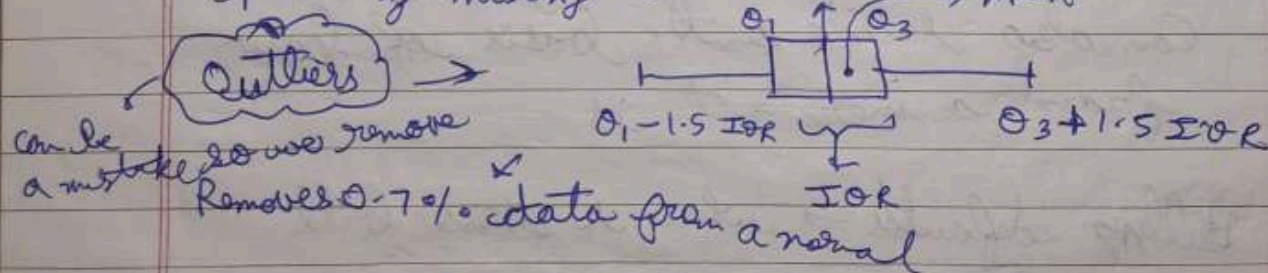 Q1 Q3
Outliers →
Q1-1.5 IQR Q3+1.5 IQR
can be
a mistake so we remove
IQR
Removes 0.7% data from a normal